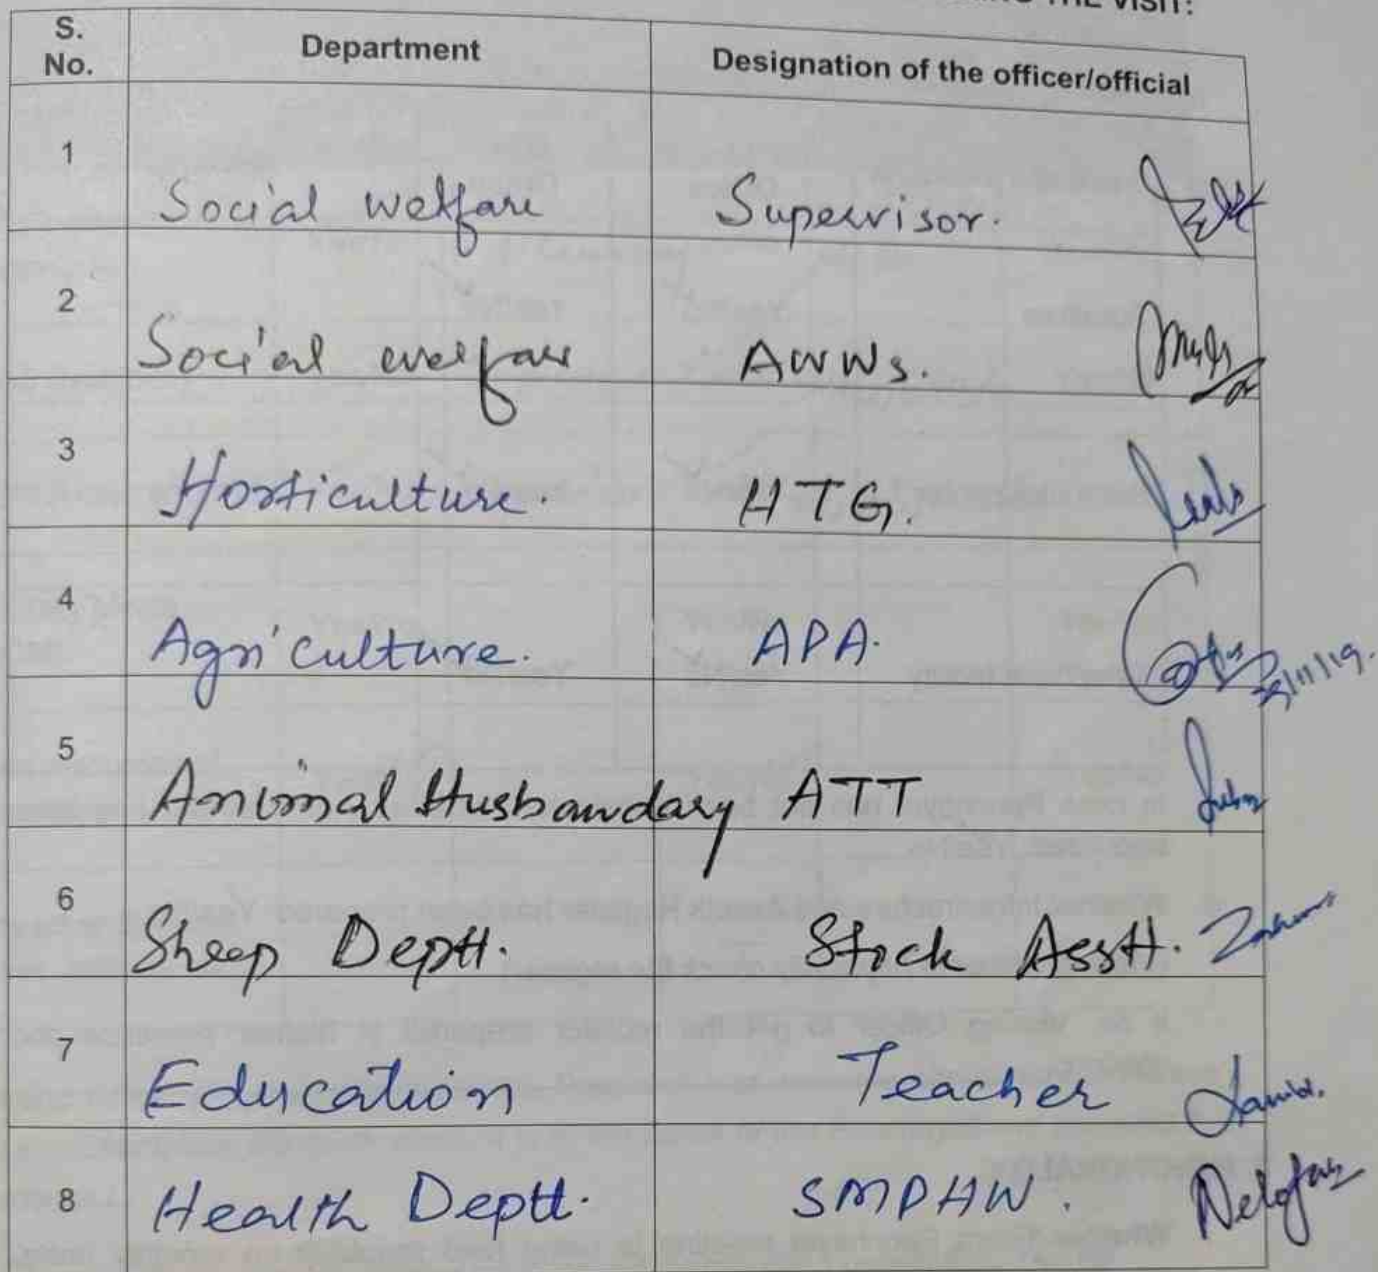 THE VISIT:
S. No. Department Designation of the officer/official
1 Social welfare Supervisor.
2 Social welfare AWWs.
3 Horticulture. HTG.
4 Agriculture. APA.
5 Animal Husbandary ATT
6 Sheep Deptt. Stock Asstt.
7 Education Teacher
8 Health Deptt. SMPHW.